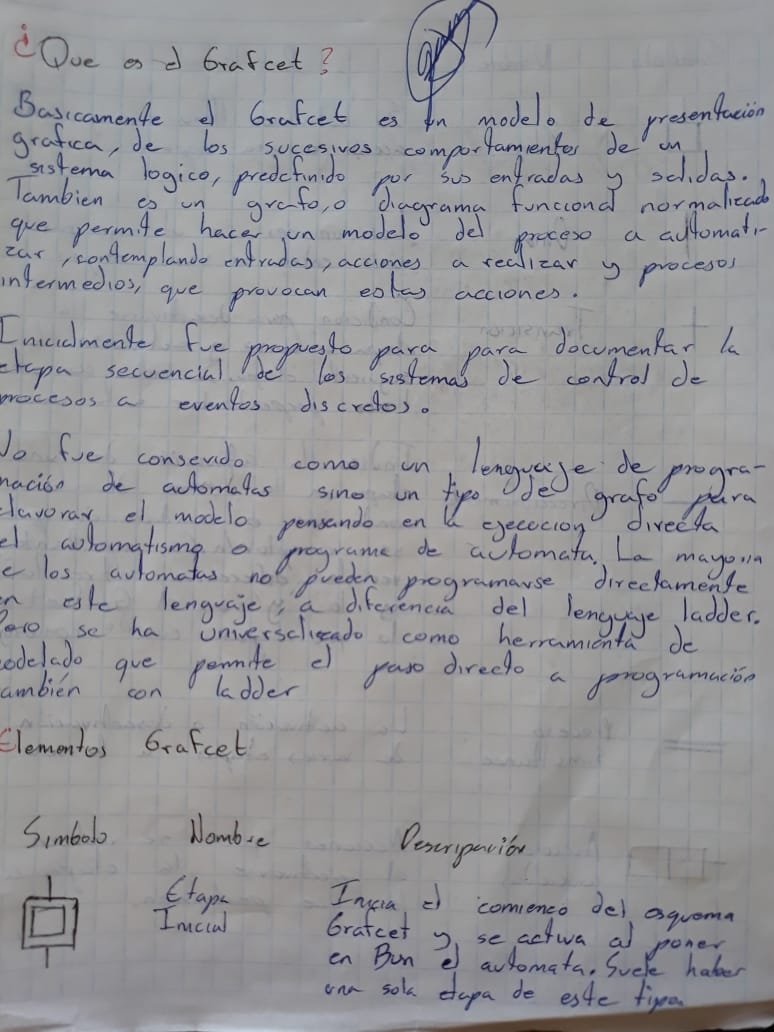 ¿Que es el Grafcet?
Basiccamente el Grafcet es un modelo de presentación
grafica, de los sucesivos comportamientos de un
sistema logico, predefinido por sus entradas y salidas.
Tambien es un grafo, o diagrama funcional normalizado
que permite hacer un modelo del proceso a automati-
zar, contemplando entradas, acciones a realizar y procesos
intermedios, que provocan estas acciones.
Inicialmente fue propuesto para para documentar la
etapa secuencial de los sistemas de control de
procesos a eventos discretos.
No fue consevido como un lenguaje de progra-
mación de automatas sino un tipo de grafo para
elavorar el modelo pensando en la ejecucion directa
el automatismo o programa de automata. La mayoria
e los automatas no pueden programarse directamente
en este lenguaje, a diferencia del lenguaje ladder.
Pero se ha universalizado como herramienta de
odelado que permite el paso directo a programación
ambién con ladder
Elementos Grafcet
Simbolo Nombre Descripación
Etapa Inicia el comienco del esquema
Inicial Grafcet y se activa al poner
en Bun el automata. Suele haber
una sola etapa de este tipo